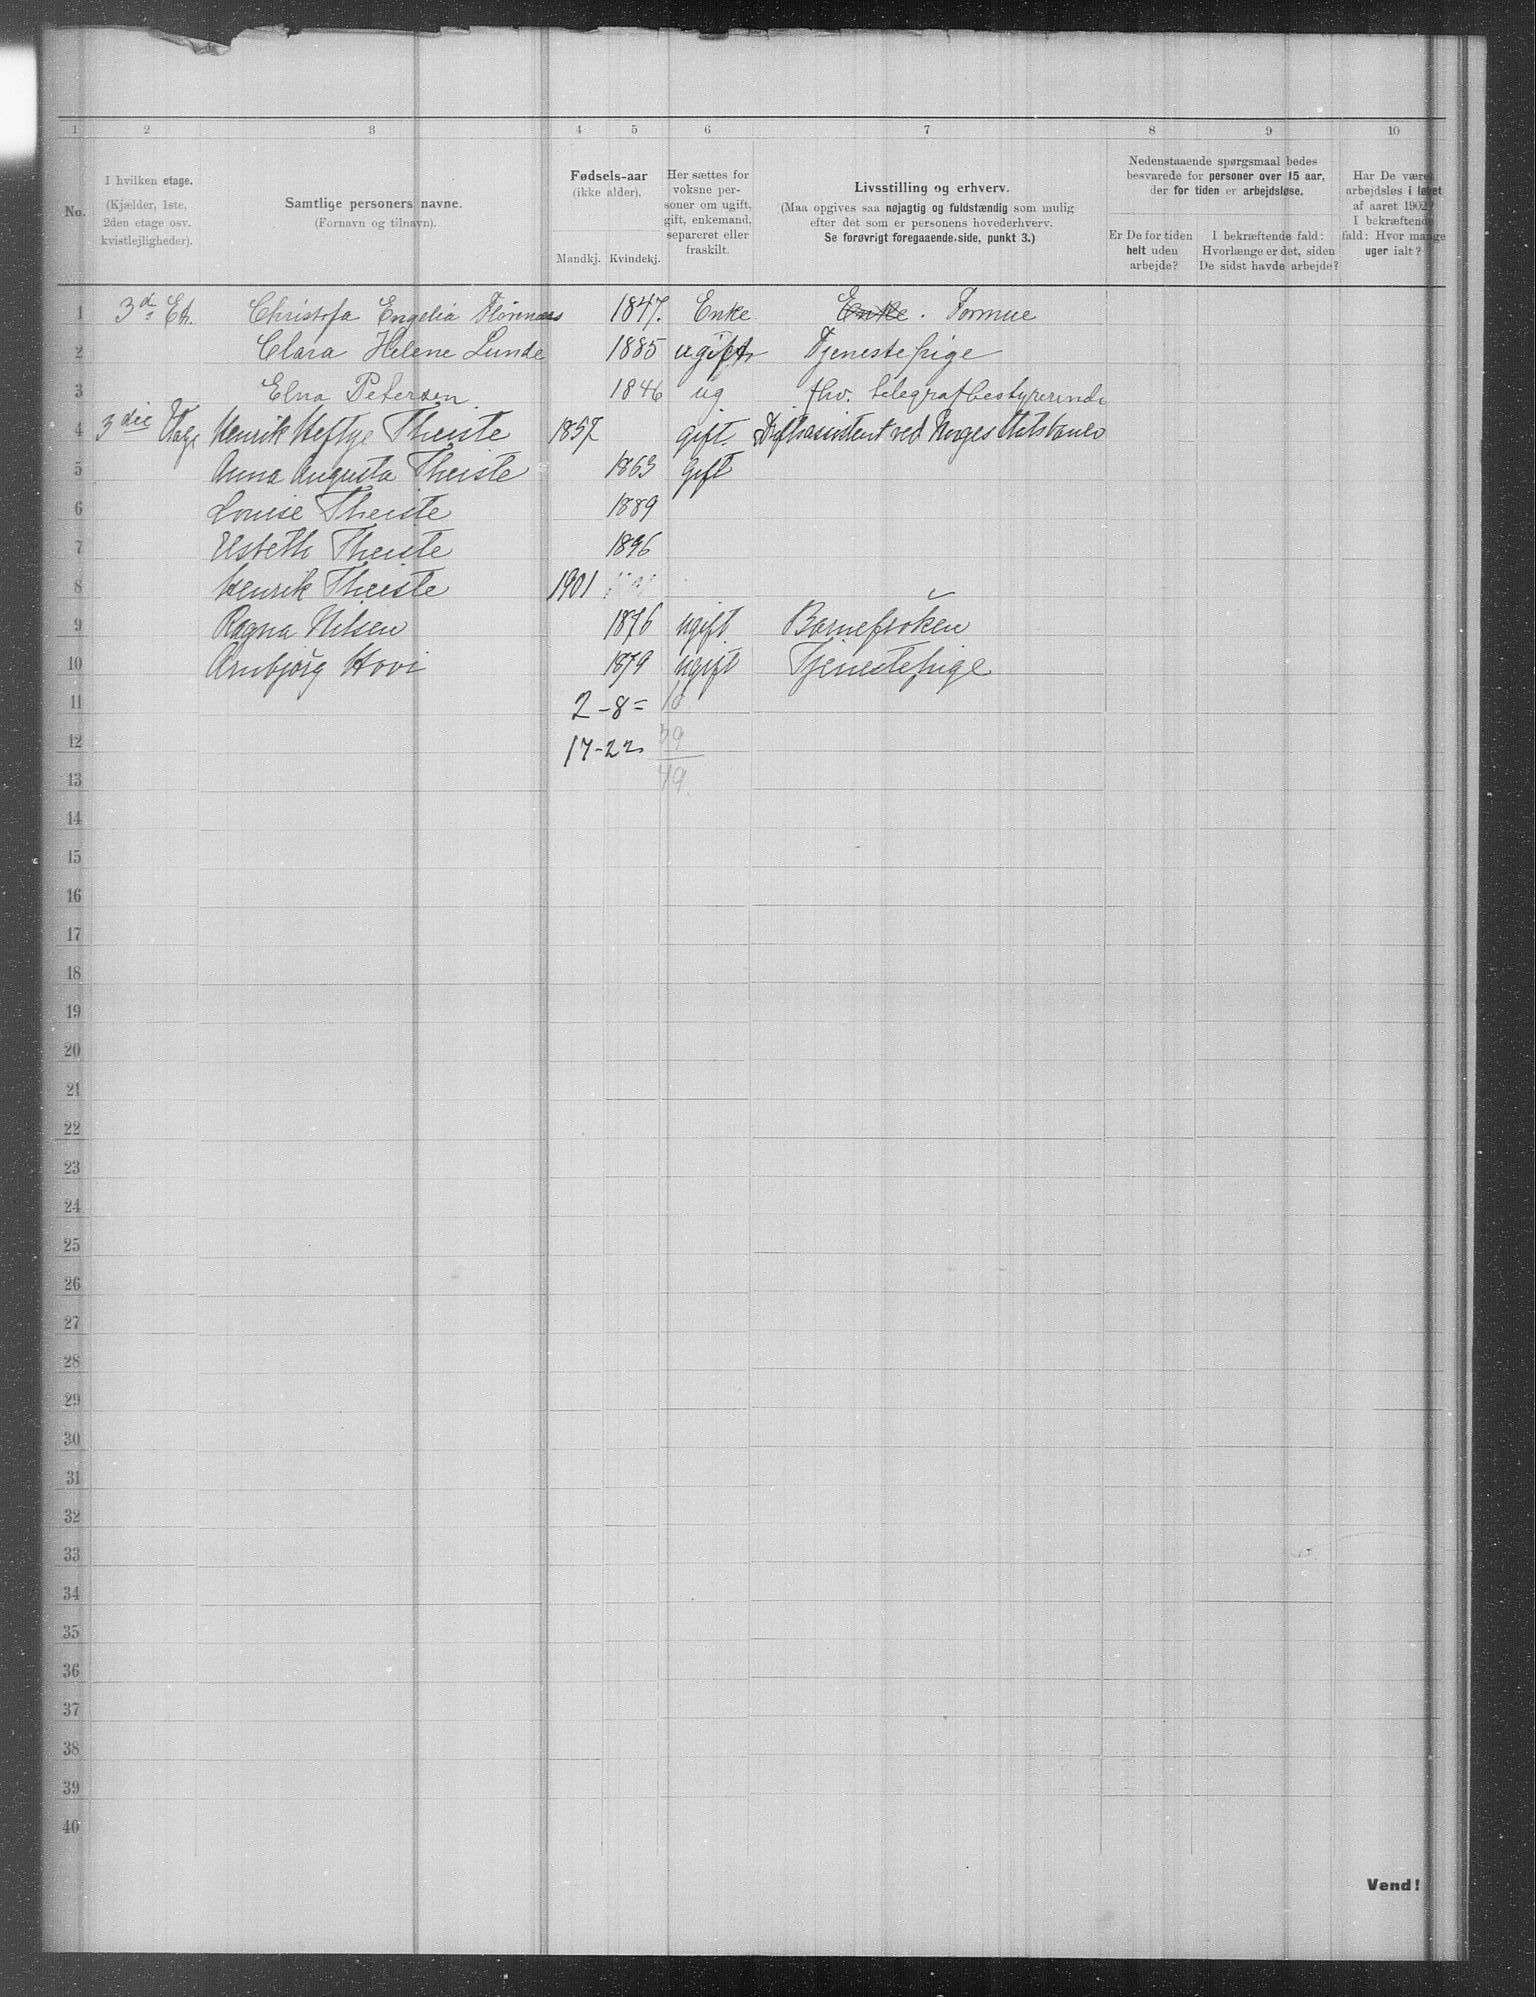 1 2 3 4 5 6 7 8 9 10
No.
I hvilken etage.
(Kjælder, 1ste,
2den etage osv.
kvistlejligheder).
Samtlige personers navne.
(Fornavn og tilnavn).
Fødsels-aar
(ikke alder).
Mandkj. Kvindekj.
Her sættes for
voksne per-
soner om ugift,
gift, enkemand,
separeret eller
fraskilt.
Livsstilling og erhverv.
(Maa opgives saa nøjagtig og fuldstændig som mulig
efter det som er personens hovederhverv.
Se forøvrigt foregaaende side, punkt 3.)
Nedenstaaende spørgsmaal bedes
besvarede for personer over 15 aar,
der for tiden er arbejdsløse.
Er De for tiden
helt uden
arbejde?
I bekræftende fald:
Hvorlænge er det, siden
De sidst havde arbejde?
Har De været
arbejdsløs i løbet
af aaret 1902?
I bekræftende
fald: Hvor mange
uger ialt?
1 3d Et. Christofa Engelia 1847. Enke Enke. Formue
2 Clara Helene Lunde 1885 ugift Tjenestepige
3 Elna Petersen 1846 ug fhv. telegrafbestyrerinde
4 3die Etage Henrik Heftye Theiste 1857 gift. ved Norges
5 Anna Augusta Theiste 1863 gift
6 Louise Theiste 1889
7 Elsbeth Theiste 1896
8 Henrik Theiste 1901
9 Ragna Nilsen 1876 ugift. Barnefrøken
10 Arnbjørg Hovi 1879 ugift Tjenestepige
11 2-8= 10
12 17-22 39
13 49.
14
15
16
17
18
19
20
21
22
23
24
25
26
27
28
29
30
31
32
33
34
35
36
37
38
39
40
Vend!